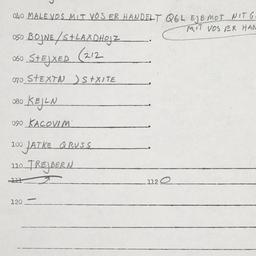 040 MALE VOS MIT VOS ER HANDELT
MIT VOS ER HAN
050 BOJNE / S+LAXDHOJZ
060 S+EJXED (212
070 S+EXTN ) S+XITE
080 KEJLN
090 KACOVIM
100 JATKE GRUSS
110 TREJBERN
111 112 0
120 —